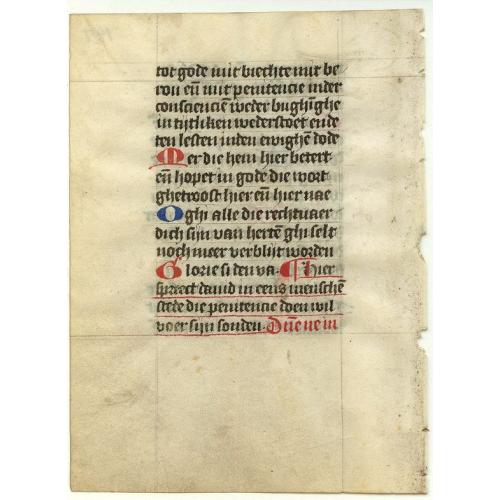 tot gode mit biechte mit be
rou eñ mit penitencie inder
consciencie weder bughĩghe
in tijtliken wederstoet ende
ten lesten inden ewighẽ dode
Mer die hem hier betert
eñ hopet in gode die wort
ghetroost hier eñ hier nae
O ghi alle die rechtuaer
dich sijn van hertẽ ghi selt
noch meer verblijt worden
Glorie si den va. Hier
spreect dauid in eens menschẽ
stede die penitencie doen wil
voer sijn sonden. Dñe ne in